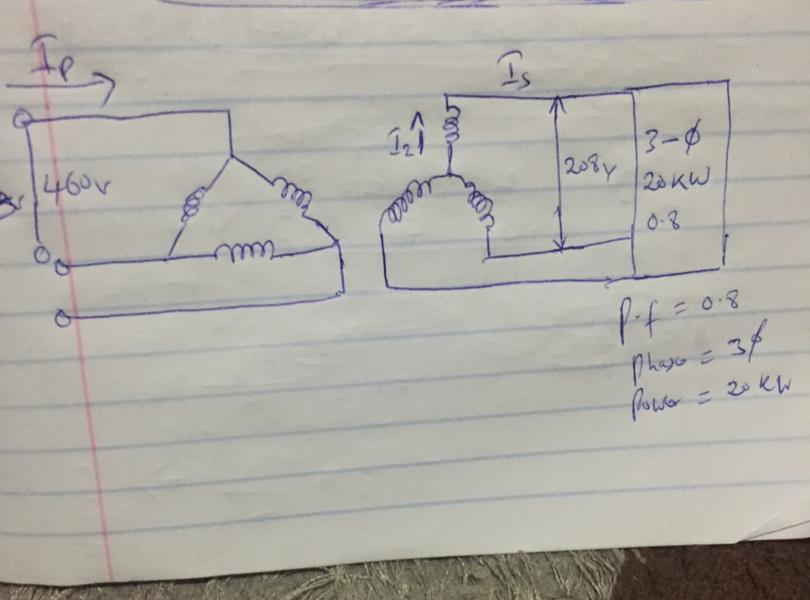 Ip
Is
460v
I2
208v
3-ϕ
20KW
0.8
P.f = 0.8
phase = 3ϕ
Power = 20KW